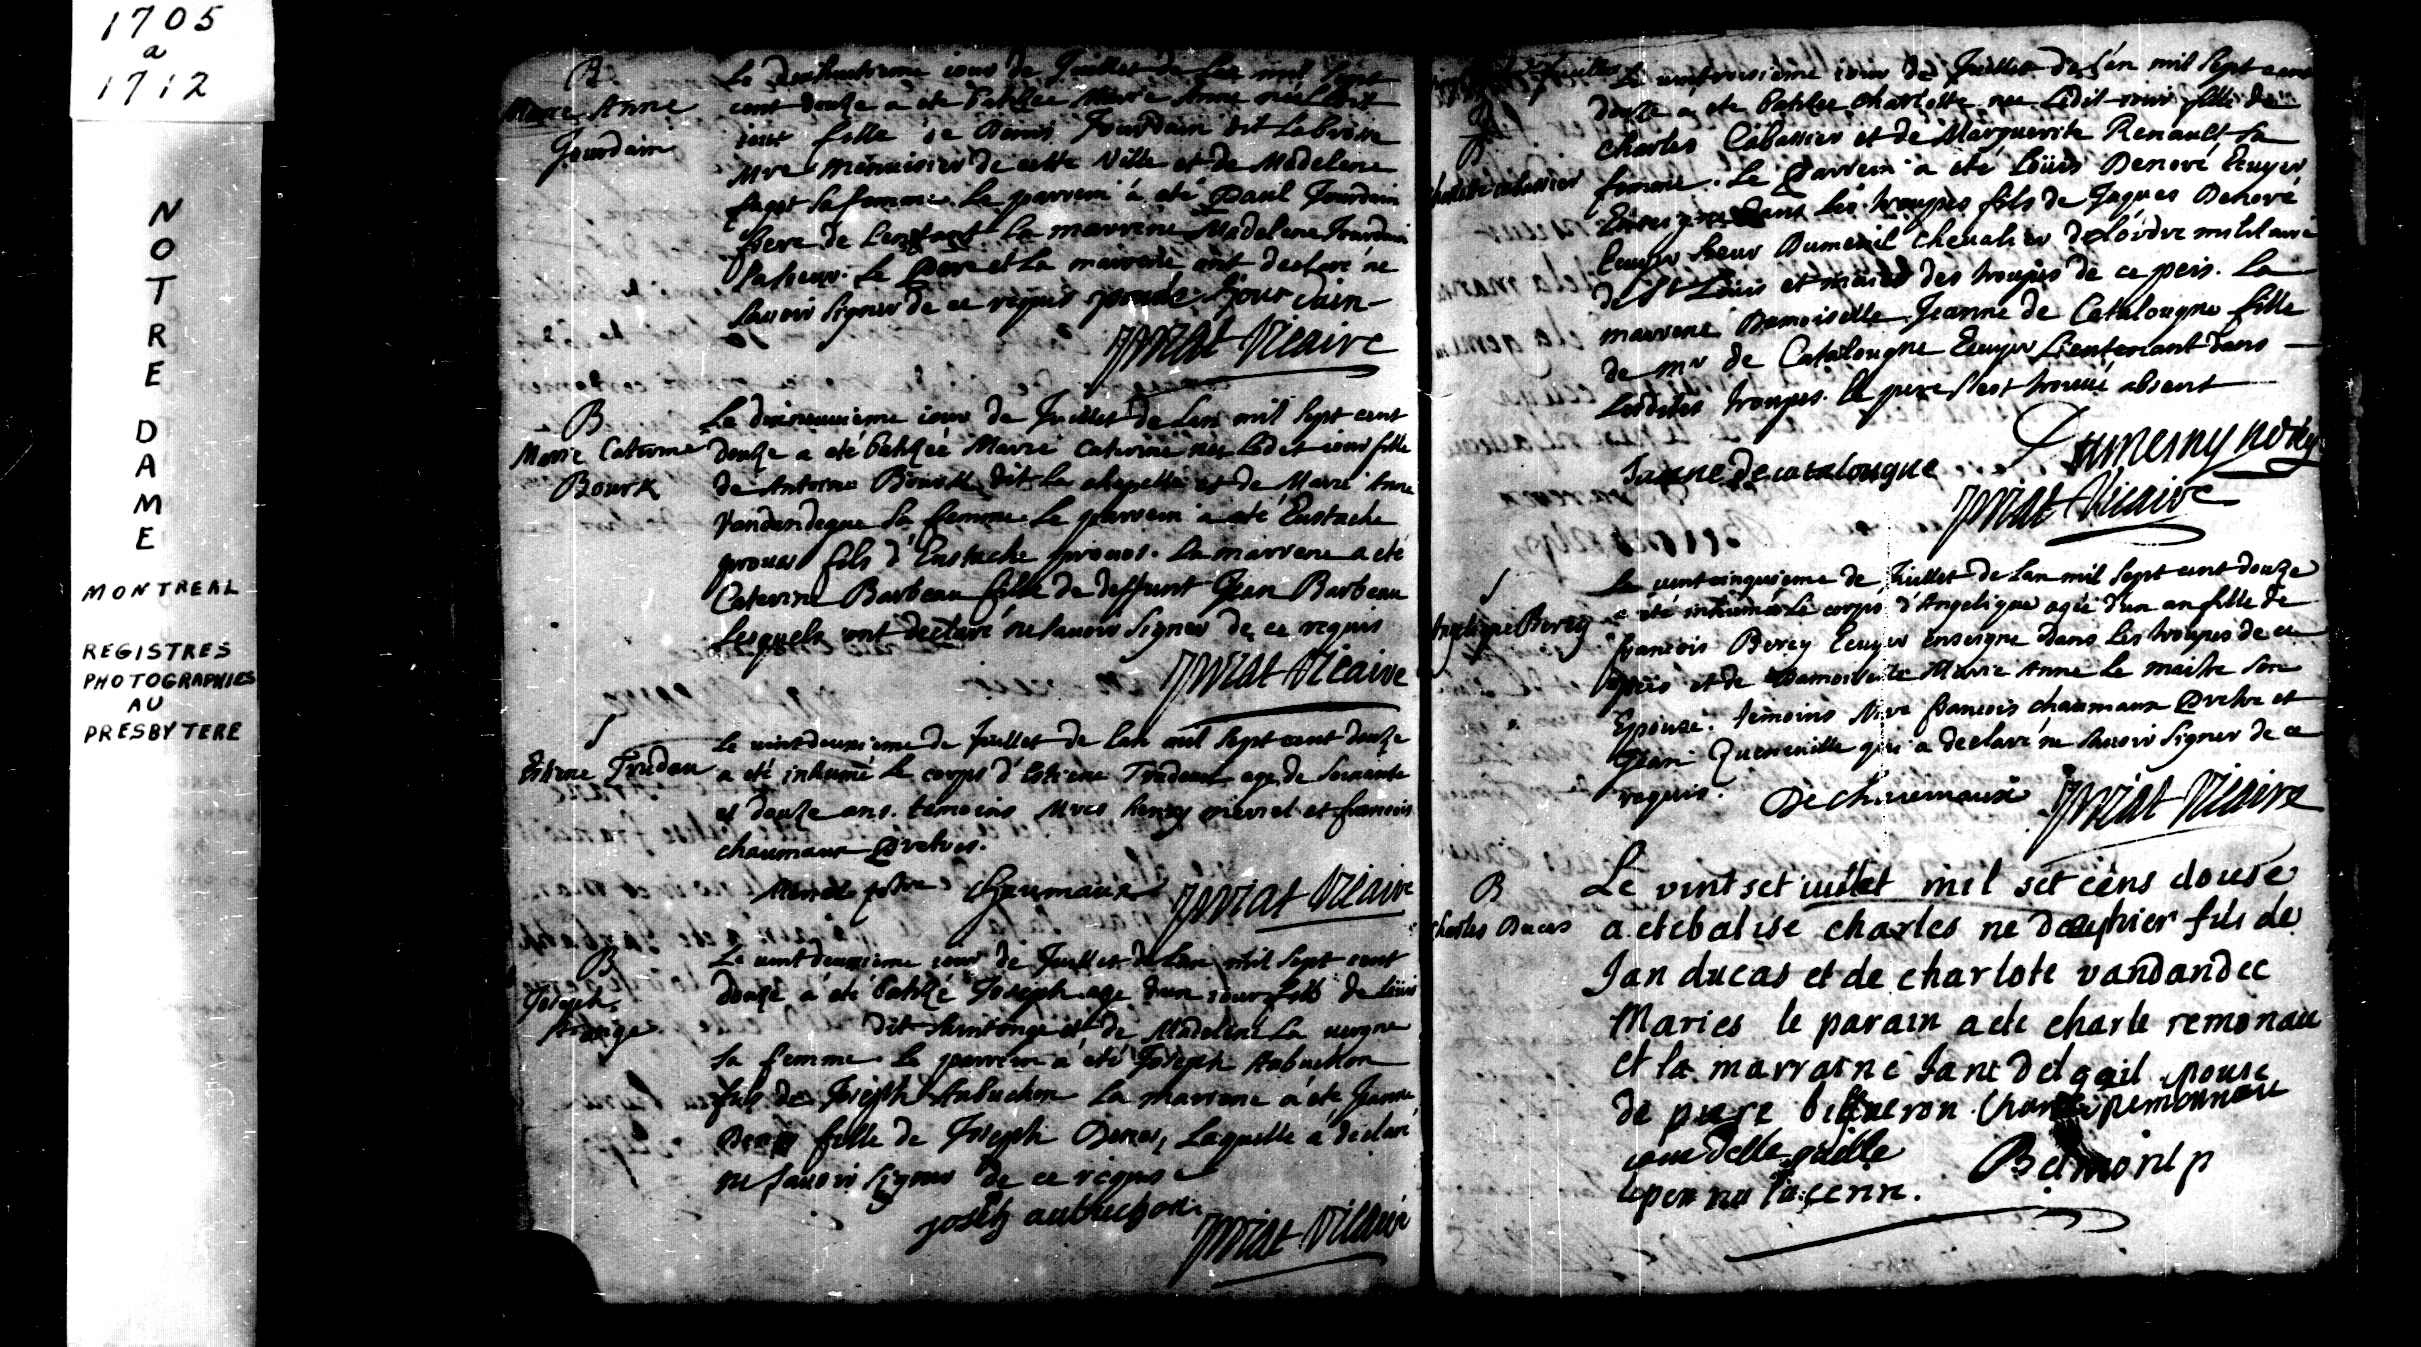 1705
a
1712
NOTRE DAME
MONTREAL
REGISTRES
PHOTOGRAPHIES
AU
PRESBYTERE
B
Marie Anne
Jourdain
Le dixhuitieme iour de Juillet de Lan mil Sept
cent douze a eté batizée Marie Anne née Ledit
iour fille de Denis Jourdain dit Labrosse
Mre Menuisier de cette Ville et de Madelene
fagot sa femme. Le parrein a eté Paul Jourdain
frere de Lenfant La marrene Madelene Jourdain
sa soeur. Le Pere et La marrene ont declaré ne
Sauoir signer de ce requis Jourdain
priat Vicaire
B
Marie Caterine
Bourk
Le dixneuuieme iour de Juillet de Lan mil Sept cent
douze a eté batizée Marie Caterine née Ledit iour fille
de Antoine dit La chapelle et de Marie Anne
Vandendegue sa femme Le parrein a eté Eustache
prouos fils d'Eustache prouos. La marrene a eté
Caterine Barbeau fille de deffunt Jean Barbeau
Lesquels ont declaré ne sauoir signer de ce requis
priat Vicaire
S
Estiene Trudeau
Le uintdeuxieme de Juillet de Lan mil Sept cent douze
a eté inhumé Le corps d'Estiene Trudeau age de soixante
et douze ans. temoins Mres henry meriel et francois
chaumaux Pretres.
Meriel ptre chaumaux priat Vicaire
B
Joseph
Le uintdeuxieme iour de Juillet de Lan mil Sept cent
douze a eté batizé Joseph age d'un iour fils de Loüis
dit saintonge et de Madelene La uergne
sa femme Le parrein a eté Joseph Aubuchon
fils de Joseph Aubuchon La marrene a eté Jeanne
fille de Joseph Denos, Laquelle a declaré
ne sauoir signer de ce requise
joseph aubuchon
priat Vicaire
B
Charlotte cabassier
Le uintroisieme iour de Juillet de L'an mil Sept cent
douze a eté batizée charlotte née Ledit iour fille de
charles Cabassier et de Marguerite Renault sa
femme. Le Parrein a eté Loüis Denoré Ecuyer
Enseigne dans Les troupes fils de Jaques Denoré
Ecuyer sieur Dumenil cheualier de Lordre militaire
de St Loüis et maior des troupes de ce peis. La
marrene Damoiselle Jeanne de Catalougne fille
de mr de Catalougne Ecuyer Lieutenant dans
Lesdites troupes. Le pere s'est trouué absent
Janne de catalougne Dumesny norey
priat Vicaire
S
Angelique Berey
Le uintcinquieme de Juillet de Lan mil Sept cent douze
a eté inhumé Le corps d'Angelique agée d'un an fille de
francois Berey Ecuyer enseigne dans Les troupes de ce
peis et de Damoiselle Marie Anne Le maistre son
Epouse. temoins Mre francois chaumaux Pretre et
Jean Quenneuille qui a declaré ne sauoir signer de ce
requis. De chaumaux priat Vicaire
B
charles Ducas
Le vint set iuillet mil set cens douse
a ete batise charles ne dauphier fils de
Jan ducas et de charlote vandandec
Maries le parain a ete charle remonau
et la marraine Jane delguil epouse
de piere bisueron Charle remonneau
Belmont p